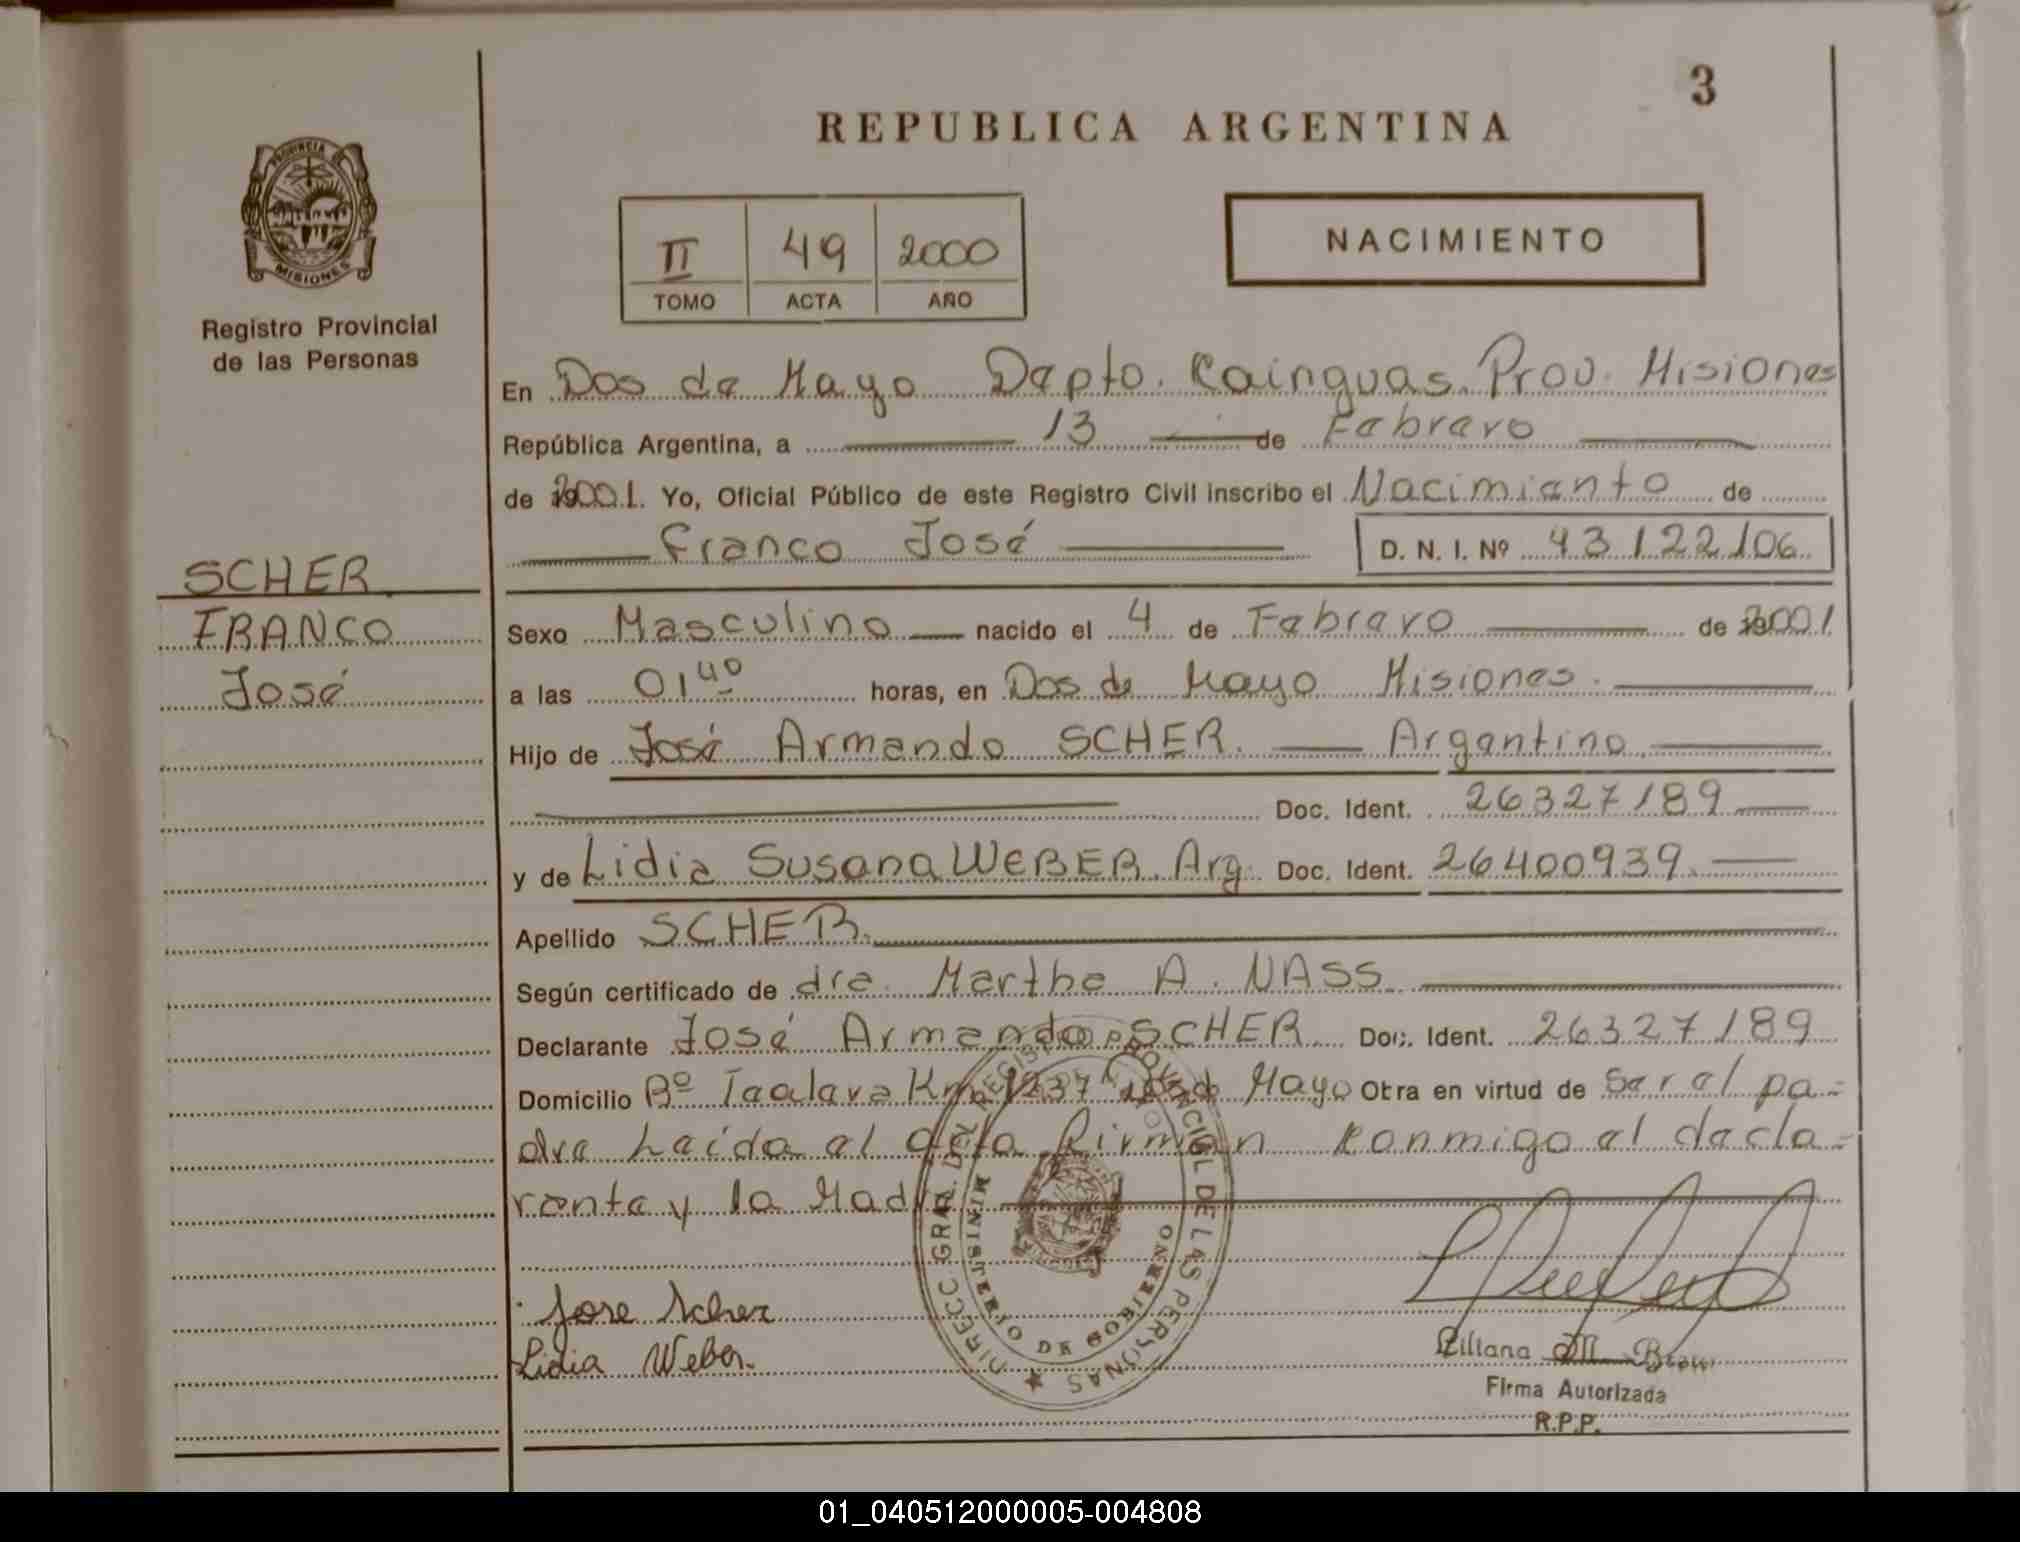 3
REPUBLICA ARGENTINA
PROVINCIA DE
MISIONES
Registro Provincial
de las Personas
II 49 2000
TOMO ACTA AÑO
NACIMIENTO
En Dos de Mayo Depto. Cainguas. Prov. Misiones
República Argentina, a 13 de Febrero
de 2001. Yo, Oficial Público de este Registro Civil inscribo el Nacimiento de
Franco José D. N. I. Nº 43122106
SCHER
FRANCO
José
Sexo Masculino nacido el 4 de Febrero de 2001
a las 01 40 horas, en Dos de Mayo Misiones.
Hijo de José Armando SCHER. Argentino
Doc. Ident. 26327189
y de Lidia Susana WEBER. Arg. Doc. Ident. 26400939
Apellido SCHER.
Según certificado de dra. Martha A. NASS
Declarante José Armando SCHER Doc. Ident. 26327189
Domicilio Bº Km. 1237 Dos de Mayo Otra en virtud de ser el pa=
dre Leída el acta firman conmigo el decla=
rante y la Madre
DIRECC. GRAL. DEL REGISTRO PROVINCIAL DE LAS PERSONAS
MINISTERIO DE GOBIERNO
Jose Scher
Lidia Weber.
Liliana M.
Firma Autorizada
R.P.P.
01_040512000005-004808